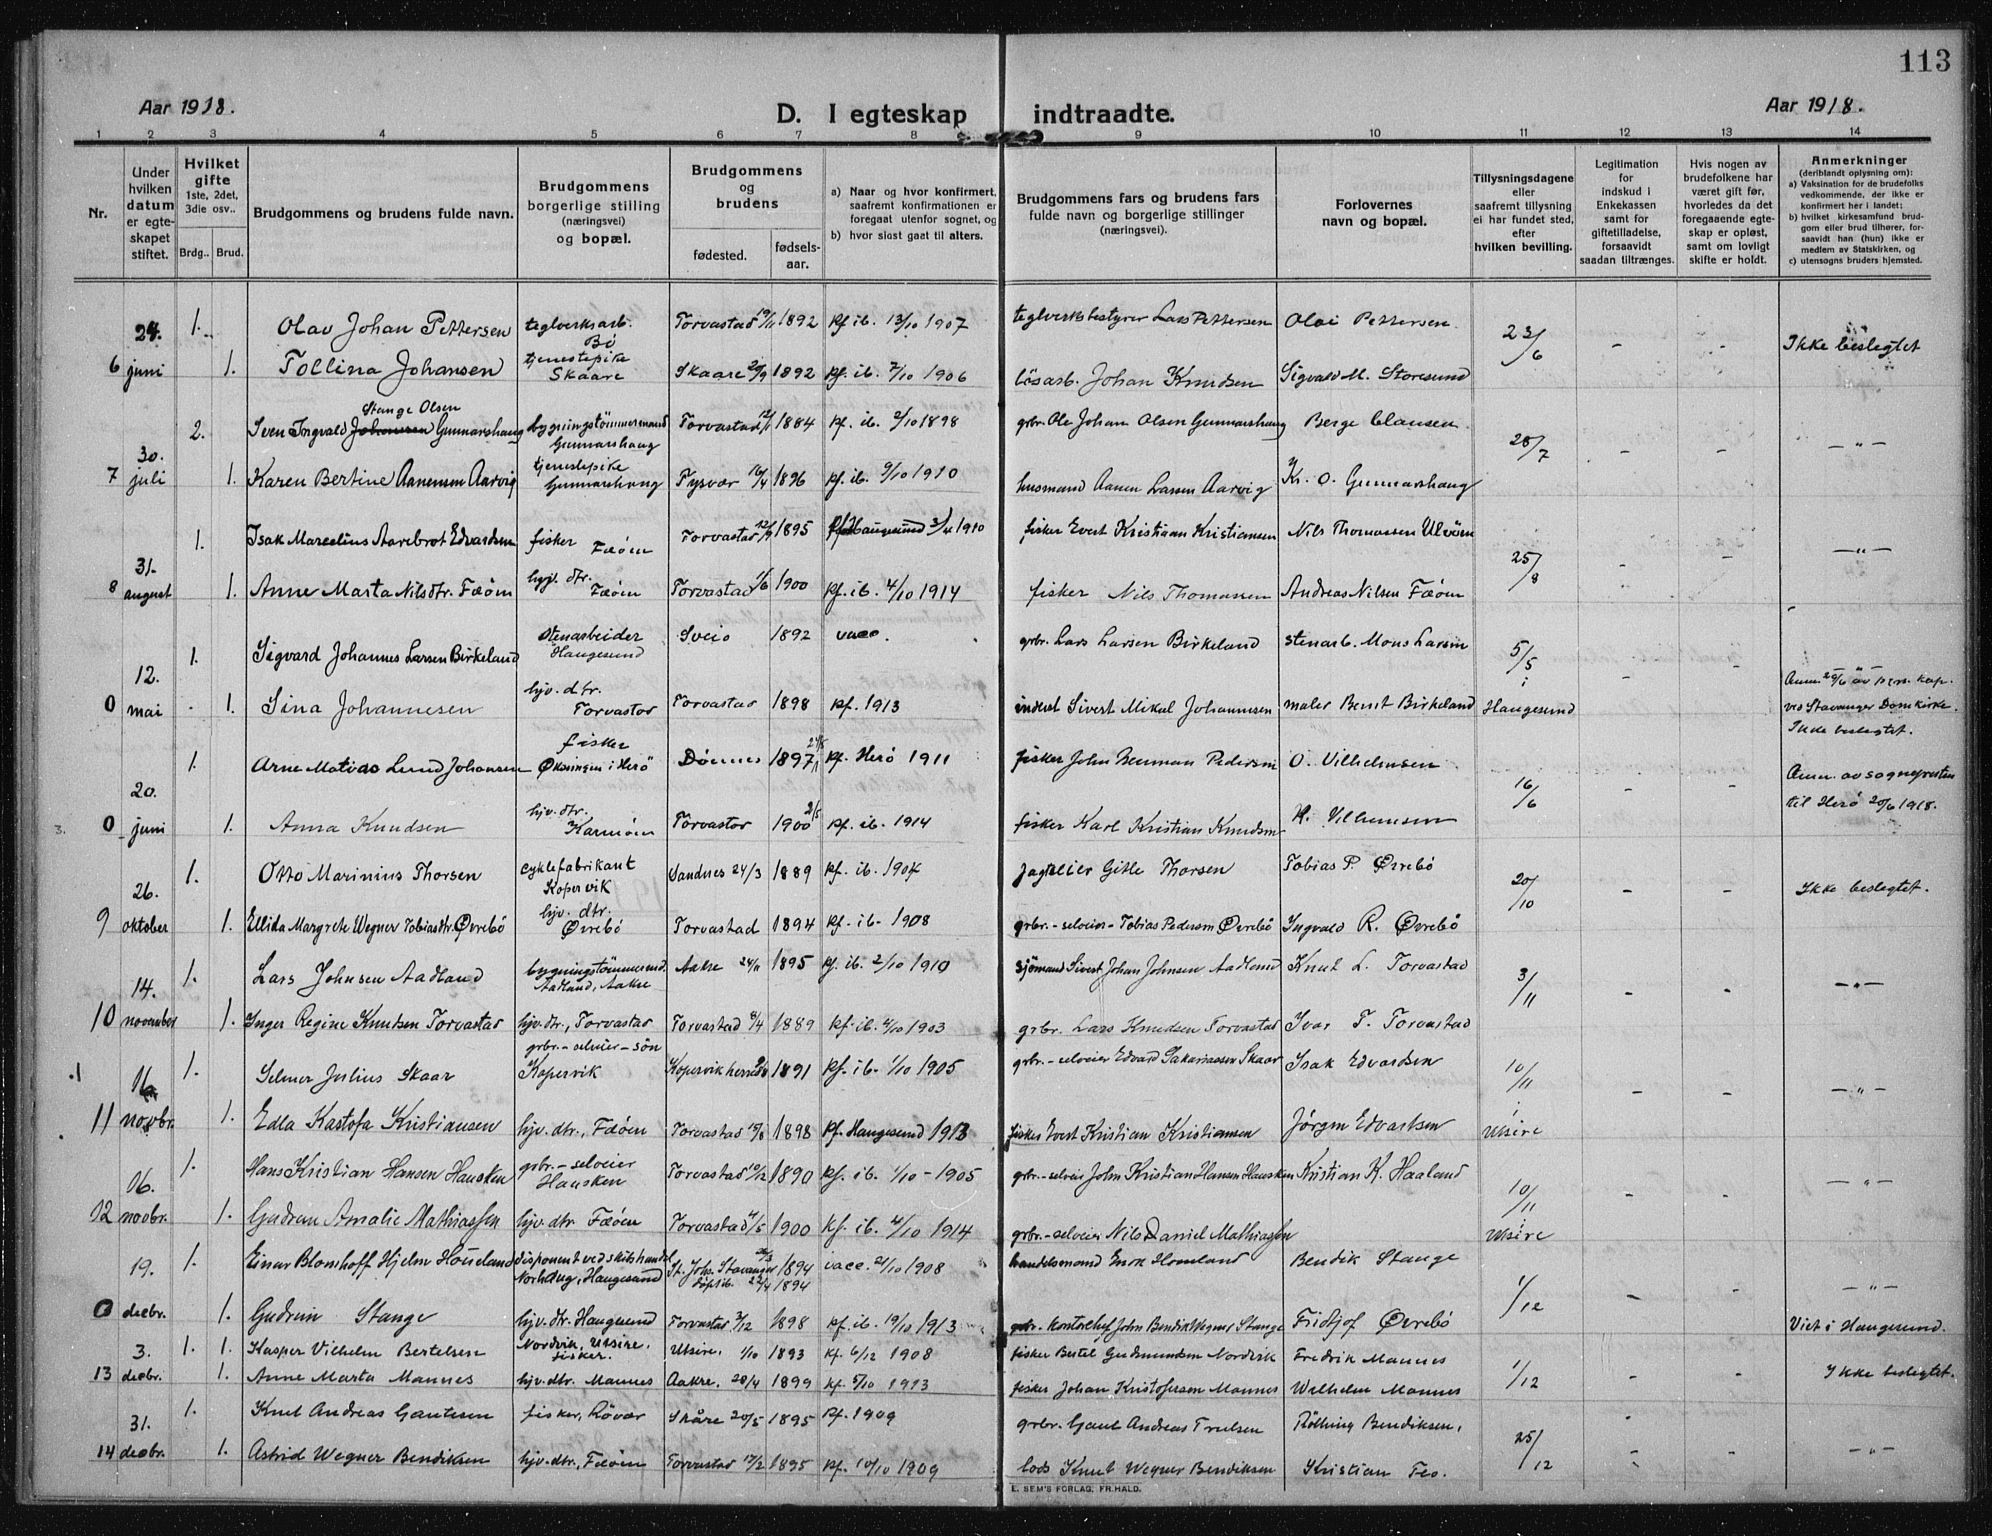 113
Aar 1918.
D. I egteskap indtraadte.
Aar 1918.
1 2 3 4 5 6 7 8 9 10 11 12 13 14
Nr.
Under hvilken datum er egteskapet stiftet.
Hvilket gifte 1ste, 2det, 3die osv..
Brdg.. Brud.
Brudgommens og brudens fulde navn.
Brudgommens borgerlige stilling (næringsvei) og bopæl.
Brudgommens og brudens
fødested. fødselsaar.
a) Naar og hvor konfirmert, saafremt konfirmationen er foregaat utenfor sognet, og
b) hvor sidst gaat til alters.
Brudgommens fars og brudens fars fulde navn og borgerlige stillinger (næringsvei).
Forlovernes navn og bopæl.
Tillysningsdagene eller saafremt tillysning ei har fundet sted, efter hvilken bevilling.
Legitimation for indskud i Enkekassen samt for giftetilladelse, forsaavidt saadan tiltrænges.
Hvis nogen av brudefolkene har været gift før, hvorledes da det foregaaende egteskap er opløst, samt om lovligt skifte er holdt.
Anmerkninger (deriblandt oplysning om):
a) Vaksination for de brudefolks vedkommende, der ikke er konfirmert her i landet;
b) hvilket kirkesamfund brudgom eller brud tilhører, forsaavidt han (hun) ikke er medlem av Statskirken, og
c) utensogns bruders hjemsted.
24. 1. Olav Johan Pettersen teglverksarb. Bö Torvastad 19/11 1892 kf. ib. 13/10 1907 teglverksbestyrer Lars Pettersen Olai Pettersen 23/6 - - Ikke beslegtet
6 juni 1. Tollina Johansen tjenestepike Skaare Skaare 29/9 1892 kf. ib. 7/10 1906 lösarb. Johan Knudsen Sigvald M. Storesund
Stange Olsen
30. 2. Sven Ingvald Johansen Gunnarshaug bygningstömmermand Gunnarshaug Torvastad 12/1 1884 kf. ib. 2/10 1898 grbr. Ole Johan Olsen Gunnarshaug Berge Clausen 28/7 - - -"-
7 juli 1. Karen Bertine Aanensen Aarvig tjenestepike Gunnarshaug Tysvær 16/4 1896 kf. ib. 9/10 1910 husmand Aanen Larsen Aarvig Kr. O. Gunnarshaug
31. 1. Isak Marcelius Aarebrot Edvardsen fisker Fæöen Torvastad 12/9 1895 Haugesund 3/4 1910 fisker Evert Kristian Kristiansen Nils Thomassen Ulvöen 25/8 - - -"-
8 august 1. Anne Marta Nilsdtr. Fæöen hyj. dtr. Fæöen Torvastad 1/6 1900 kf. ib. 4/10 1914 fisker Nils Thomassen Andreas Nilsen Fæöen
12. 1. Sigvard Johannes Larsen Birkeland stenarbeider Haugesund Sveio 1892 vacc. grbr. Lars Larsen Birkeland stenarb. Mons Larsen 5/5 - -
0 mai 1. Sina Johannesen hjv. dtr. Torvastad Torvastad 1898 kf. 1913 Sivert Mikal Johannesen maler Bernt Birkeland i Haugesund Anm. 20/6 av pers. kap. ved Stavanger Domkirke. Ikke beslegtet.
20. 1. Arne Matias Lund Johansen fisker Öksningen i Herö Dönnes 1897 kf. Herö 1911 fisker John Pedersen O. Vilhelmsen 16/6 - - Anm. av sognepresten til Herö 20/6 1918.
0 juni 1. Anna Knudsen hjv. dtr. Karmöen Torvastad 2/5 1900 kf. ib. 1914 fisker Karl Kristian Knudsen K. Vilhelmsen
26. 1. Otto Marinius Thorsen cyklefabrikant Kopervik Sandnes 24/3 1889 kf. ib. 1904 Gitle Thorsen Tobias P. Övrebö 20/10 - - Ikke beslegtet.
9 oktober 1. Ellida Margrete Wegner Tobiasdtr. Övrebö hjv. dtr. Övrebö Torvastad 1894 kf. ib. 1908 grbr.-selveier Tobias Pedersen Övrebö Ingvald R. Övrebö
14. 1. Lars Johnsen Aadland bygningstömmermd. Aadland, Aakre Aakre 24/11 1895 kf. ib. 2/10 1910 sjömand Sivert Johan Johnsen Aadland Knut L. Torvastad 3/11 - - -"-
10 november 1. Inger Regine Knudsen Torvastad hjv. dtr., Torvastad Torvastad 8/4 1889 kf. ib. 4/10 1903 grbr. Lars Knudsen Torvastad Ivar T. Torvastad
16. 1. Selmer Julius Skaar grbr.-selveier-sön Kopervik Kopervik herred 1891 kf. ib. 1/10 1905 grbr.-selveier Edvard Sakariassen Skaar Isak Edvardsen 10/11 - - -"-
11 novbr. 1. Edla Kastofa Kristiansen hjv. dtr., Fæöen Torvastad 1898 kf. Haugesund 1913 fisker Evert Kristian Kristiansen Jörgen Edvardsen i Utsire
06. 1. Hans Kristian Hansen Hausken grbr.-selveier Hausken Torvastad 10/12 1890 kf. ib. 1/10 - 1905 grbr.-selveier John Kristian Hansen Hausken Kristian K. Haaland 10/11 - - -"-
12 novbr. 1. Gudrun Amalie Mathiassen hjv. dtr. Fæöen Torvastad 4/5 1900 kf. ib. 4/10 1914 grbr.-selveier Nils Daniel Mathiassen i Utsire
19. 1. Einar Blomhoff Hjelm Houeland disponent ved skibshandel Norheug, Haugesund St. Joh. Stavanger 1894 döpt ib. 22/4 1894 vacc. 21/10 1908 handelsmand Enok Homeland Bendik Stange 1/12 - - -"-
0 decbr. 1. Gudrun Stange hjv. dtr. Haugesund Torvastad 3/12 1898 kf. ib. 19/10 1913 kontorchef John Bendik Wegner Stange Fridtjof Övrebö Viet i Haugesund.
3. 1. 1. Kasper Vilhelm Bertelsen Nordvik, Utsire, fisker. Utsire, 1/10 1893 kf. 6/12 1908 fisker Bertel Gudmundsen Nordvik Fredrik Mannes 1/12 - - Ikke beslegtet.
13 decbr. 1. Anne Marta Mannes hjv. dtr. Mannes Aakre. 28/4 1899 kf. 5/10 1913 fisker Johan Kristofersen Mannes Wilhelm Mannes
31. 1. Knut Andreas Gautesen fisker, Rövær Skåre 20/5 1895 kf. 1909 grbr. Gaut Andreas Trulsen Bendiksen, 25/12 - - -"-
14 decbr. 1. Astrid Wegner Bendiksen hjv. dtr., Fæöen Torvastad 17/2 1895 kf. 10/10 1909 lods Knut Wegner Bendiksen Kristian Feo.
E. SEM'S FORLAG, FR.HALD.